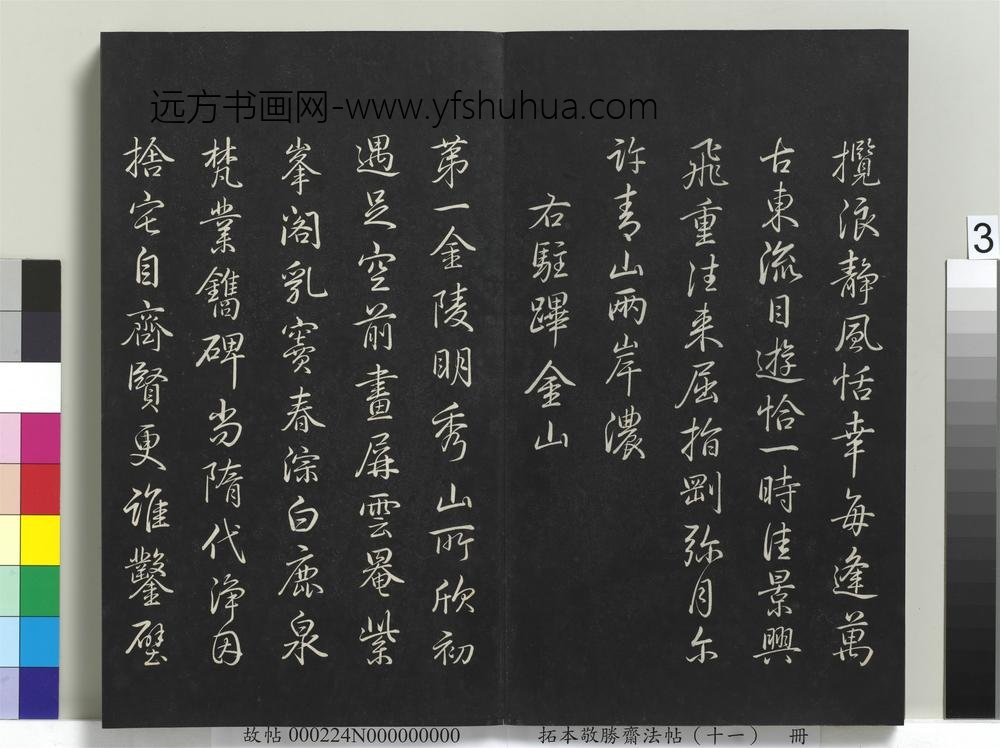 远方书画网-www.yfshuhua.com
攬浪靜風恬幸每逢萬
古東流目遊恰一時佳景興
飛重往來屈指剛弥月尓
許青山兩岸濃
右駐蹕金山
第一金陵明秀山所欣初
遇足空前畫屏雲罨紫
峯閣乳竇春淙白鹿泉
梵業鐫碑尚隋代淨因
捨宅自齊賢更誰鑿壁
3
故帖 000224N000000000
拓本敬勝齋法帖（十一） 冊